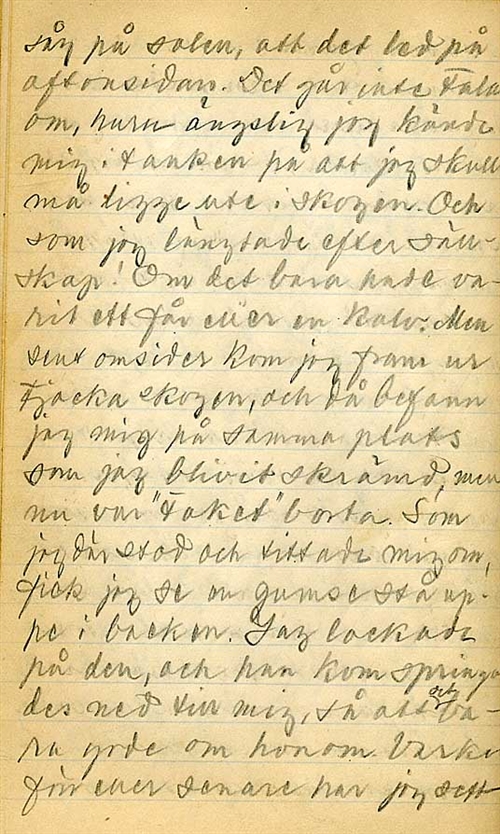 såg på solen, att det led på
aftonsidan. Det går inte tala
om, huru ängslig jag kände
mig i tanken på att jag skull
må ligge ute i skogen. Och
som jag längtade efter säll-
skap! Om det bara hade va-
rit ett får eller en kalv. Men
sent omsider kom jag fram ur
tjocka skogen, och då befann
jag mig på samma plats
som jag blivit skrämd, men
nu var "taket" borta. Som
jag där stod och tittade mig om,
fick jag se en gumse stå up-
pe i backen. Jag lockade
på den, och han kom springa
des ned till mig, så att det ba-
ra yrde om honom. Varke
för eller senare har jag sett